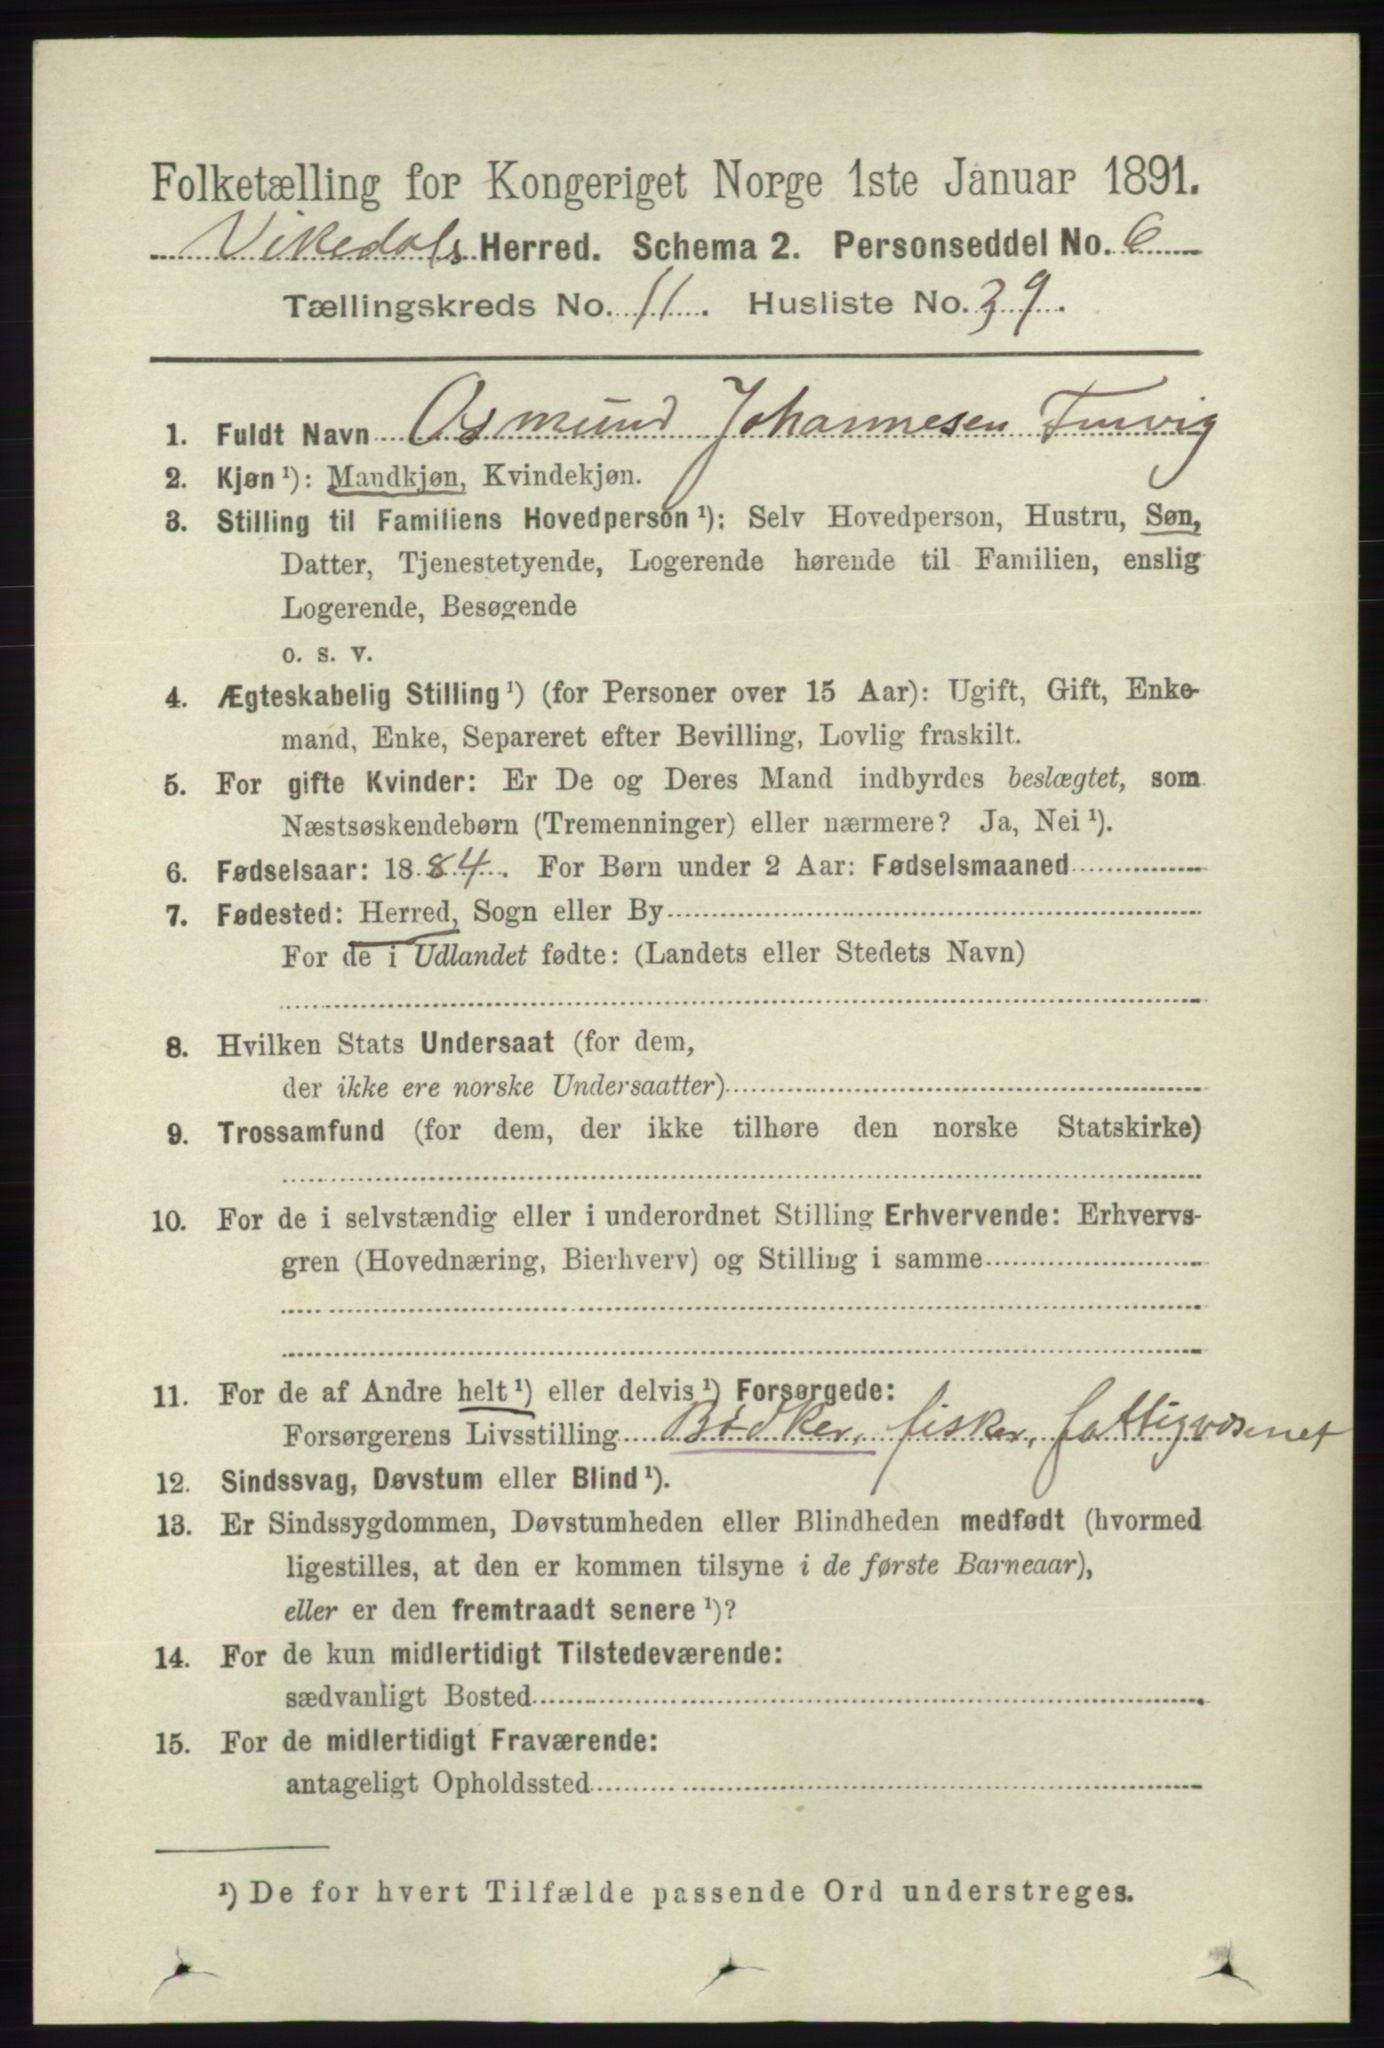 Folketælling for Kongeriget Norge 1ste Januar 1891.
Vikedals Herred. Schema 2. Personseddel No. 6
Tællingskreds No. 11. Husliste No. 39.
1. Fuldt Navn Osmund Johannesen
2. Kjøn ¹): Mandkjøn, Kvindekjøn.
3. Stilling til Familiens Hovedperson ¹): Selv Hovedperson, Hustru, Søn,
Datter, Tjenestetyende, Logerende hørende til Familien, enslig
Logerende, Besøgende
o. s. v.
4. Ægteskabelig Stilling ¹) (for Personer over 15 Aar): Ugift, Gift, Enke-
mand, Enke, Separeret efter Bevilling, Lovlig fraskilt.
5. For gifte Kvinder: Er De og Deres Mand indbyrdes beslægtet, som
Næstsøskendebørn (Tremenninger) eller nærmere? Ja, Nei ¹).
6. Fødselsaar: 1884. For Børn under 2 Aar: Fødselsmaaned
7. Fødested: Herred, Sogn eller By
For de i Udlandet fødte: (Landets eller Stedets Navn)
8. Hvilken Stats Undersaat (for dem,
der ikke ere norske Undersaatter)
9. Trossamfund (for dem, der ikke tilhøre den norske Statskirke)
10. For de i selvstændig eller i underordnet Stilling Erhvervende: Erhvervs-
gren (Hovednæring, Bierhverv) og Stilling i samme
11. For de af Andre helt ¹) eller delvis ¹) Forsørgede:
Forsørgerens Livsstilling Bødker, fisker, fattigvæsenet
12. Sindssvag, Døvstum eller Blind ¹).
13. Er Sindssygdommen, Døvstumheden eller Blindheden medfødt (hvormed
ligestilles, at den er kommen tilsyne i de første Barneaar),
eller er den fremtraadt senere ¹)?
14. For de kun midlertidigt Tilstedeværende:
sædvanligt Bosted
15. For de midlertidigt Fraværende:
antageligt Opholdssted
¹) De for hvert Tilfælde passende Ord understreges.